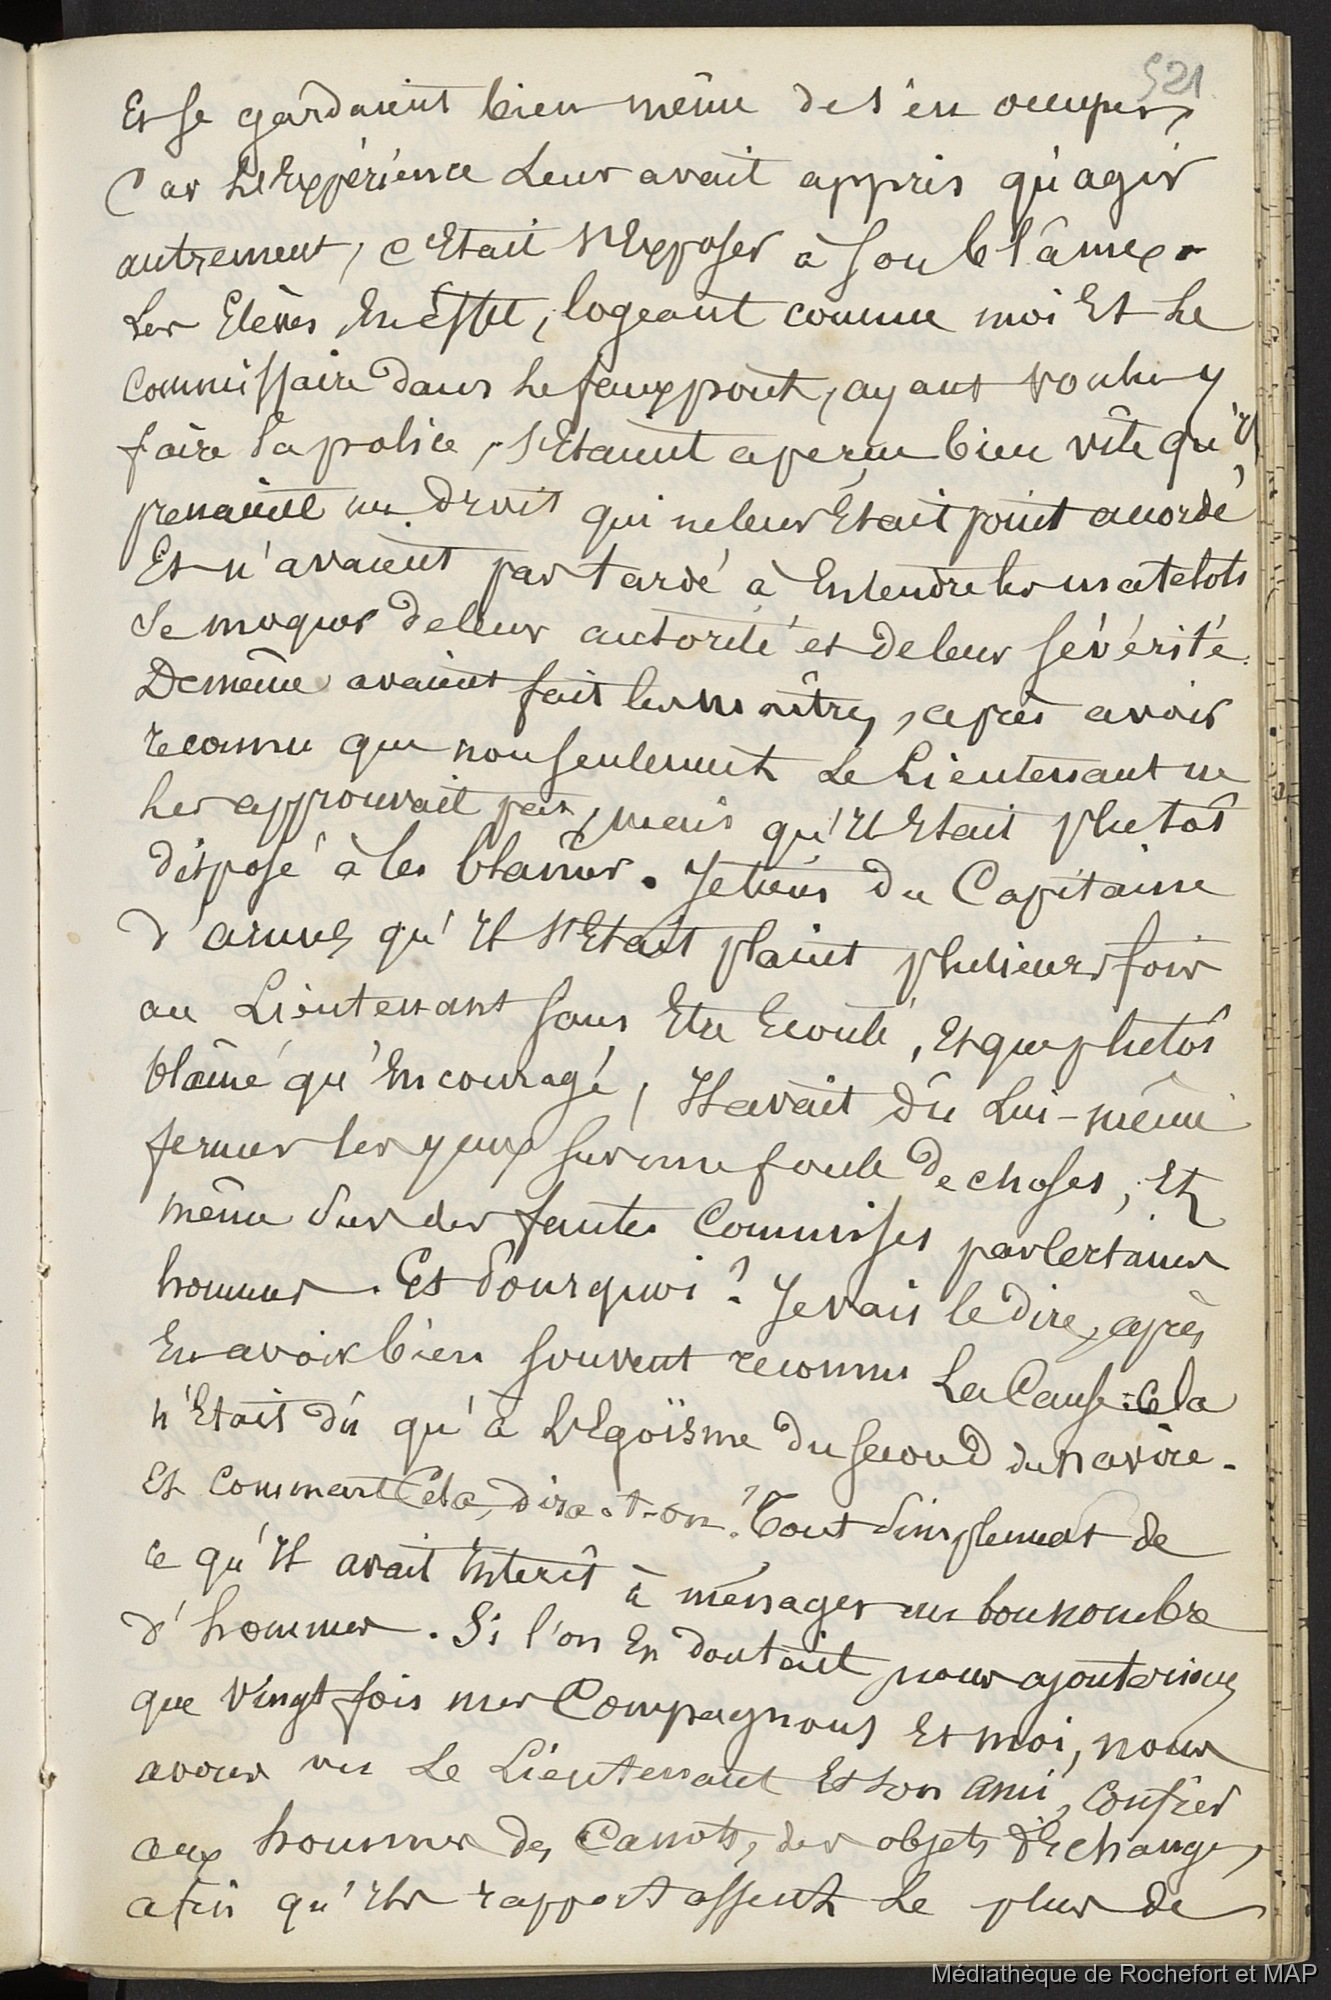 521
Et se gardaient bien même de s'en occuper,
Car l'Expérience Leur avait appris qu'agir
autrement, c'Etait s'Exposer à son blâme.
Les Elèves, En Effet, logeant comme moi Et Le
commissaire dans Le faux pont, ayant voulu y
faire la police, s'Etaient aperçu bien vite qu'ils
prenaient un droit qui ne leur Etait point accordé
Et n'avaient pas tardé à Entendre les matelots
Se moquer de leur autorité et de leur sévérité.
De même avaient fait les maîtres, après avoir
reconnu que non seulement Le Lieutenant ne
Les approuvait pas, mais qu'Il Etait plutôt
disposé à les blâmer. Je tiens du Capitaine
d'armes qu'Il s'Etait plaint plusieurs fois
au Lieutenant sans Etre Ecouté, Et que plutôt
blâmé qu'Encouragé, Il avait dû Lui-même
fermer les yeux sur une foule de choses, Et
même sur des fautes Commises par Certains
hommes. Et Pourquoi? Je vais le dire, après
En avoir bien souvent reconnu La Cause: Cela
n'Etait dû qu'à L'Egoïsme du second du navire.
Et Comment Cela, dira-t-on? Tout simplement de
ce qu'Il avait Intérêt à ménager un bon nombre
d'hommes. Si l'on En doutait nous ajouterions
que Vingt fois mes Compagnons Et moi, nous
avons vu Le Lieutenant Et son ami, Confier
aux hommes des Canots, des objets d'Echange,
afin qu'Ils rapportassent Le plus de
Médiathèque de Rochefort et MAP